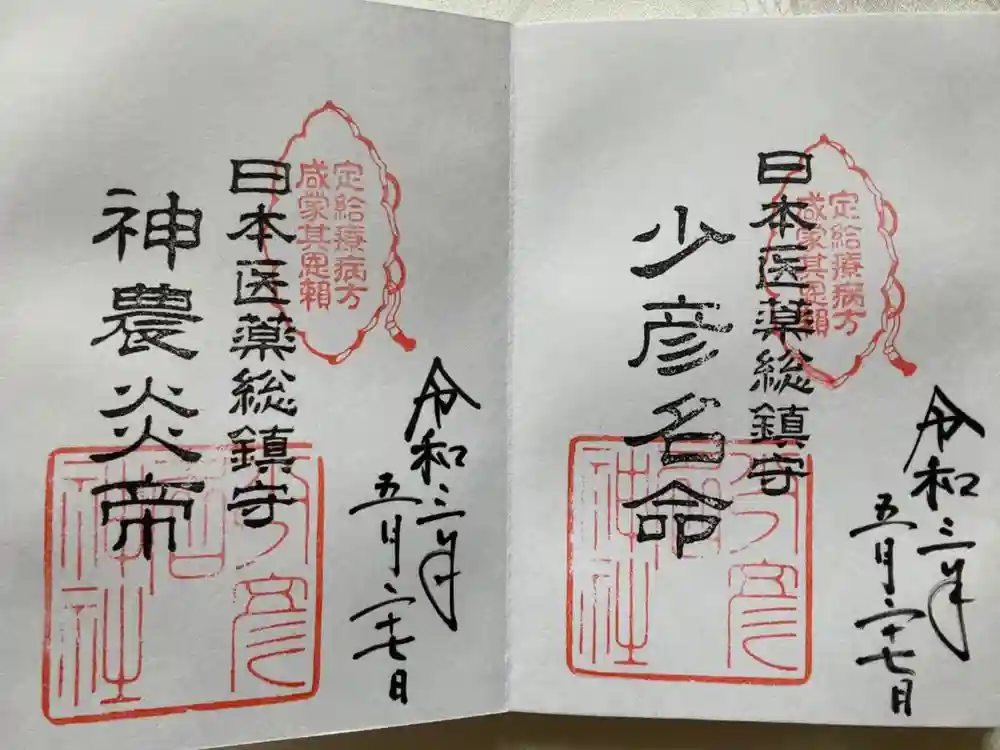 令和三年
五月二十七日
定給療病方
咸蒙其恩賴
日本医薬総鎮守
少彦名命
少彦名神社
令和三年
五月二十七日
定給療病方
咸蒙其恩賴
日本医薬総鎮守
神農炎帝
少彦名神社